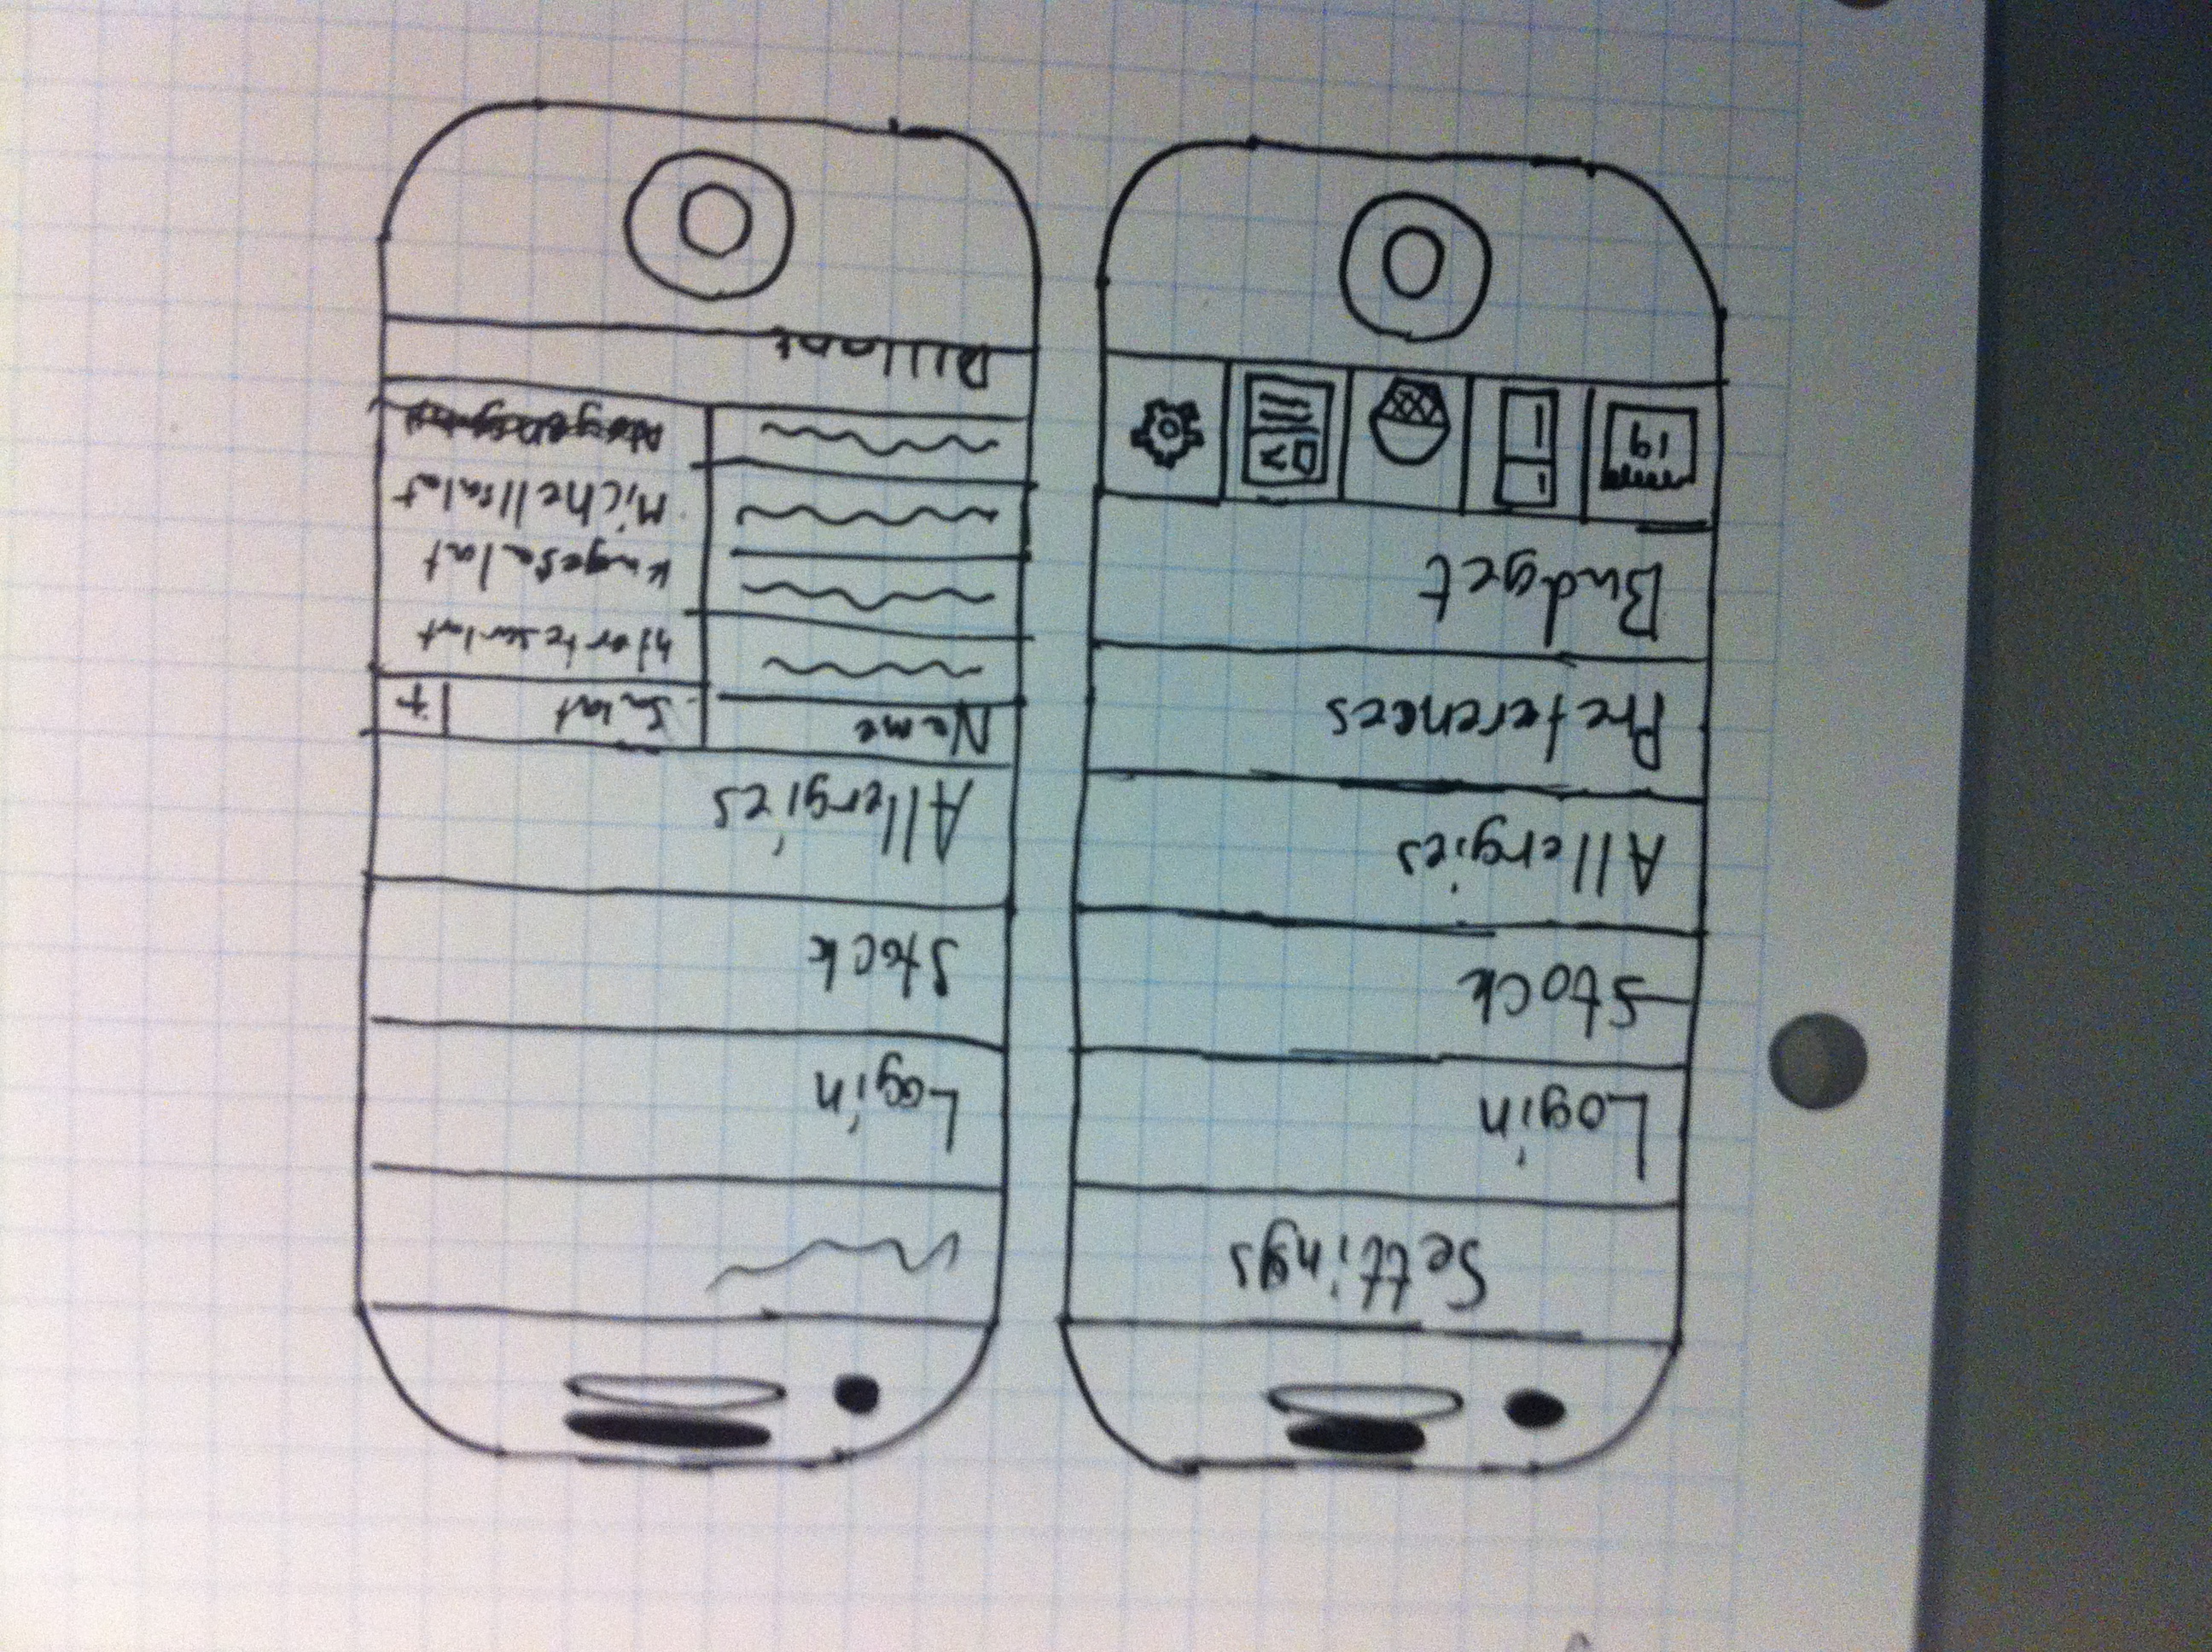 Settings
Login
Stock
Allergies
Preferences
Budget
19
Login
Stock
Allergies
Name
Salat
+
Hjertesalat
Kngesalat
Michellsalat